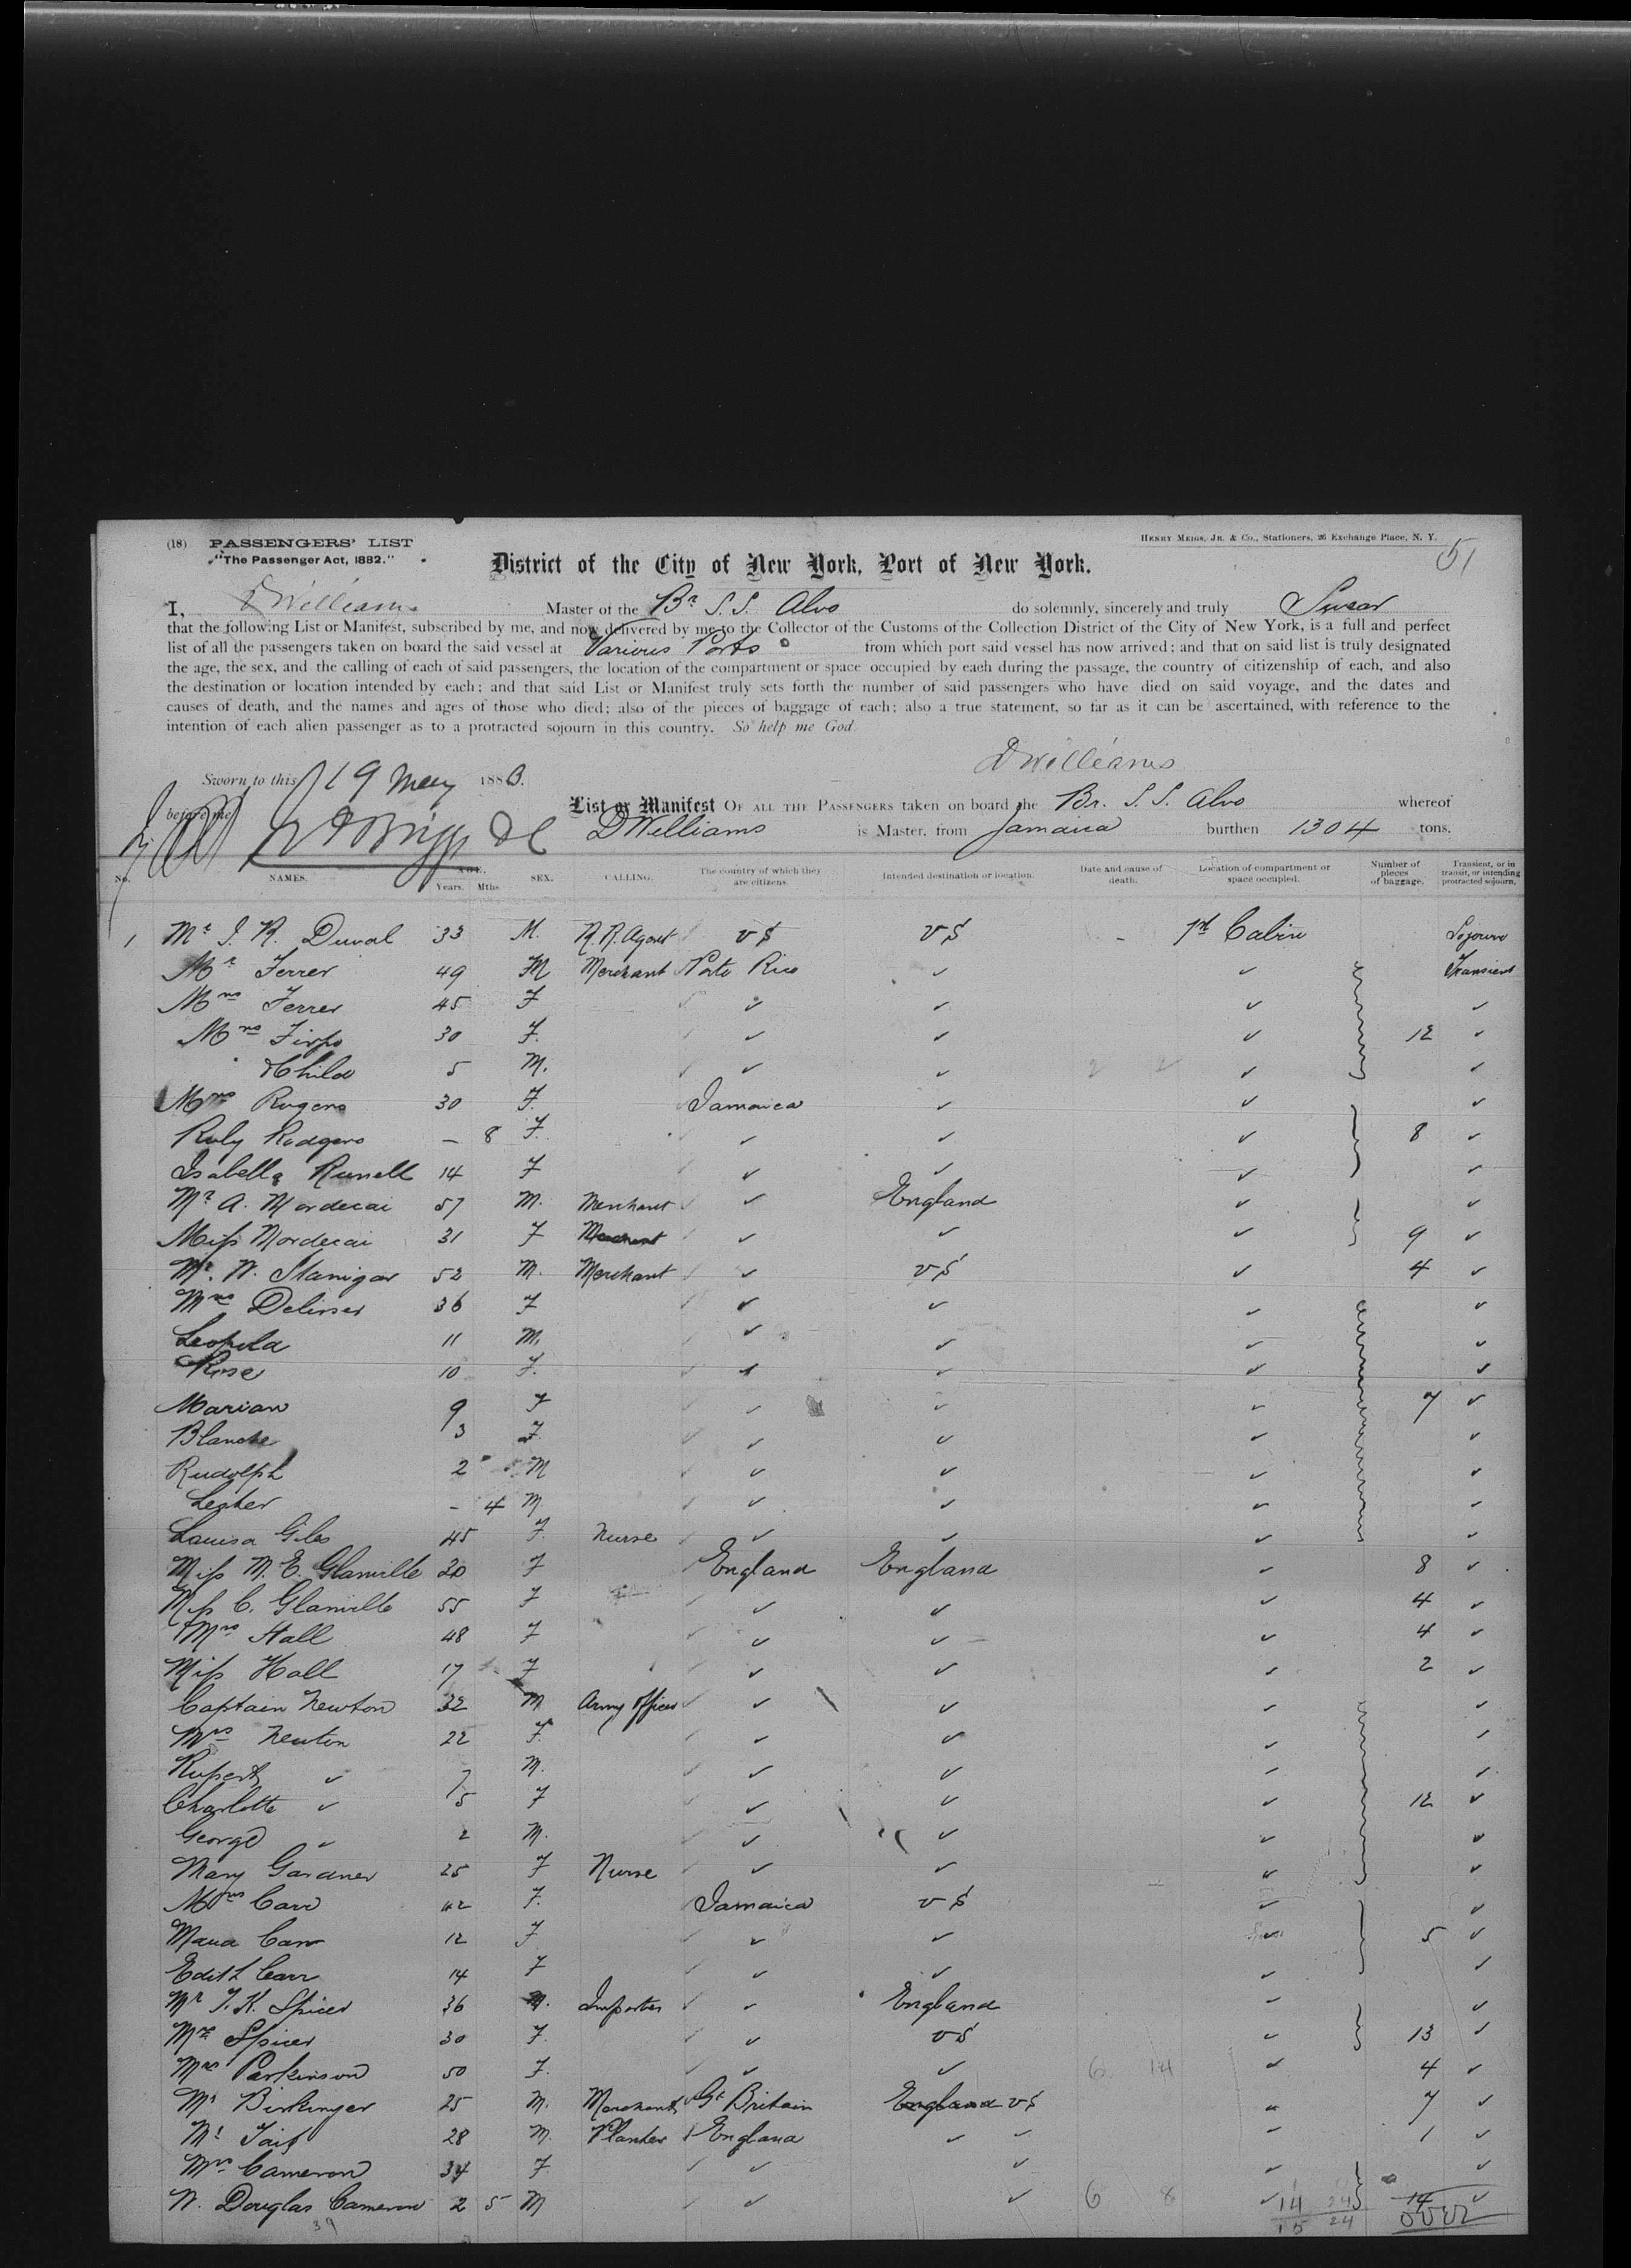 (18) PASSENGERS' LIST
"The Passenger Act, 1882."
HENRY MEIGS, JR. & CO., Stationers, 26 Exchange Place, N. Y.
51
District of the City of New York, Port of New York.
I, D Williams Master of the Br S.S. Alvo do solemnly, sincerely and truly Swear
that the following List or Manifest, subscribed by me, and now delivered by me to the Collector of the Customs of the Collection District of the City of New York, is a full and perfect
list of all the passengers taken on board the said vessel at Various Ports from which port said vessel has now arrived; and that on said list is truly designated
the age, the sex, and the calling of each of said passengers, the location of the compartment or space occupied by each during the passage, the country of citizenship of each, and also
the destination or location intended by each; and that said List or Manifest truly sets forth the number of said passengers who have died on said voyage, and the dates and
causes of death, and the names and ages of those who died; also of the pieces of baggage of each; also a true statement, so far as it can be ascertained, with reference to the
intention of each alien passenger as to a protracted sojourn in this country. So help me God
D Williams
Sworn to this 19 May 1883.
before me
List or Manifest OF ALL THE PASSENGERS taken on board the Br. S.S. Alvo whereof
D Williams is Master, from Jamaica burthen 1304 tons.
No. NAMES. AGE. Years. Mths. SEX. CALLING. The country of which they are citizens. Intended destination or location. Date and cause of death. Location of compartment or space occupied. Number of pieces of baggage. Transient, or in transit, or intending protracted sojourn.
1 Mr J. R. Duval 33 M. R.R. Agent U S U S - 1st Cabin Sojourn
Mr Ferrer 49 M Merchant Porto Rico ✓ ✓ Transient
Mrs Ferrer 45 F ✓ ✓ ✓ ✓
Mrs Firpo 30 F. ✓ ✓ ✓ 12 ✓
& Child 5 M. ✓ ✓ ✓ ✓
Mrs Rogers 30 F. Jamaica ✓ ✓ ✓
Ruby Rodgers - 8 F. ✓ ✓ ✓ 8 ✓
Isabella Russell 14 F ✓ ✓ ✓ ✓
Mr A. Mordecai 57 M. Merchant ✓ England ✓ ✓
Miss Mordecai 31 F ✓ ✓ ✓ 9 ✓
Mr. W. Stanigar 52 M. Merchant ✓ U S ✓ 4 ✓
Mrs Delisser 36 F ✓ ✓ ✓ ✓
Leopold 11 M. ✓ ✓ ✓ ✓
Rose 10 F. ✓ ✓ ✓ ✓
Marian 9 F ✓ ✓ ✓ 7 ✓
Blanche 3 F. ✓ ✓ ✓ ✓
Rudolph 2 M ✓ ✓ ✓ ✓
Lester - 4 M ✓ ✓ ✓ ✓
Louisa Giles 45 F. Nurse ✓ ✓ ✓ ✓
Miss M. E. Glanville 20 F England England ✓ 8 ✓
Miss C. Glanville 55 F ✓ ✓ ✓ 4 ✓
Mrs Hall 48 F ✓ ✓ ✓ 4 ✓
Miss Hall 17 F ✓ ✓ ✓ 2 ✓
Captain Newton 32 M Army Officer ✓ ✓ ✓ ✓
Mrs Newton 22 F. ✓ ✓ ✓ ✓
Rupert ✓ 7 M. ✓ ✓ ✓ ✓
Charlotte ✓ 5 F ✓ ✓ ✓ 12 ✓
George ✓ 2 M. ✓ ✓ ✓ ✓
Mary Gardner 25 F Nurse ✓ ✓ ✓ ✓
Mrs Carr 42 F. Jamaica U S ✓ ✓
Maud Carr 12 F ✓ ✓ ✓ 5 ✓
Edith Carr 14 F ✓ ✓ ✓ ✓
Mr T. K. Spicer 36 M. Importer ✓ England ✓ ✓
Mrs Spicer 30 F. ✓ U S ✓ 13 ✓
Mrs Parkinson 50 F. ✓ ✓ 6 14 ✓ 4 ✓
Mr Birkinger 25 M. Merchant Gt Britain England U S ✓ 7 ✓
Mr Tait 28 M. Planter England ✓ ✓ ✓ 1 ✓
Mrs Cameron 34 F. ✓ ✓ ✓ ✓
W. Douglas Cameron 2 5 M ✓ ✓ 6 8 ✓ 14 ✓
39 14 24 15 24 over